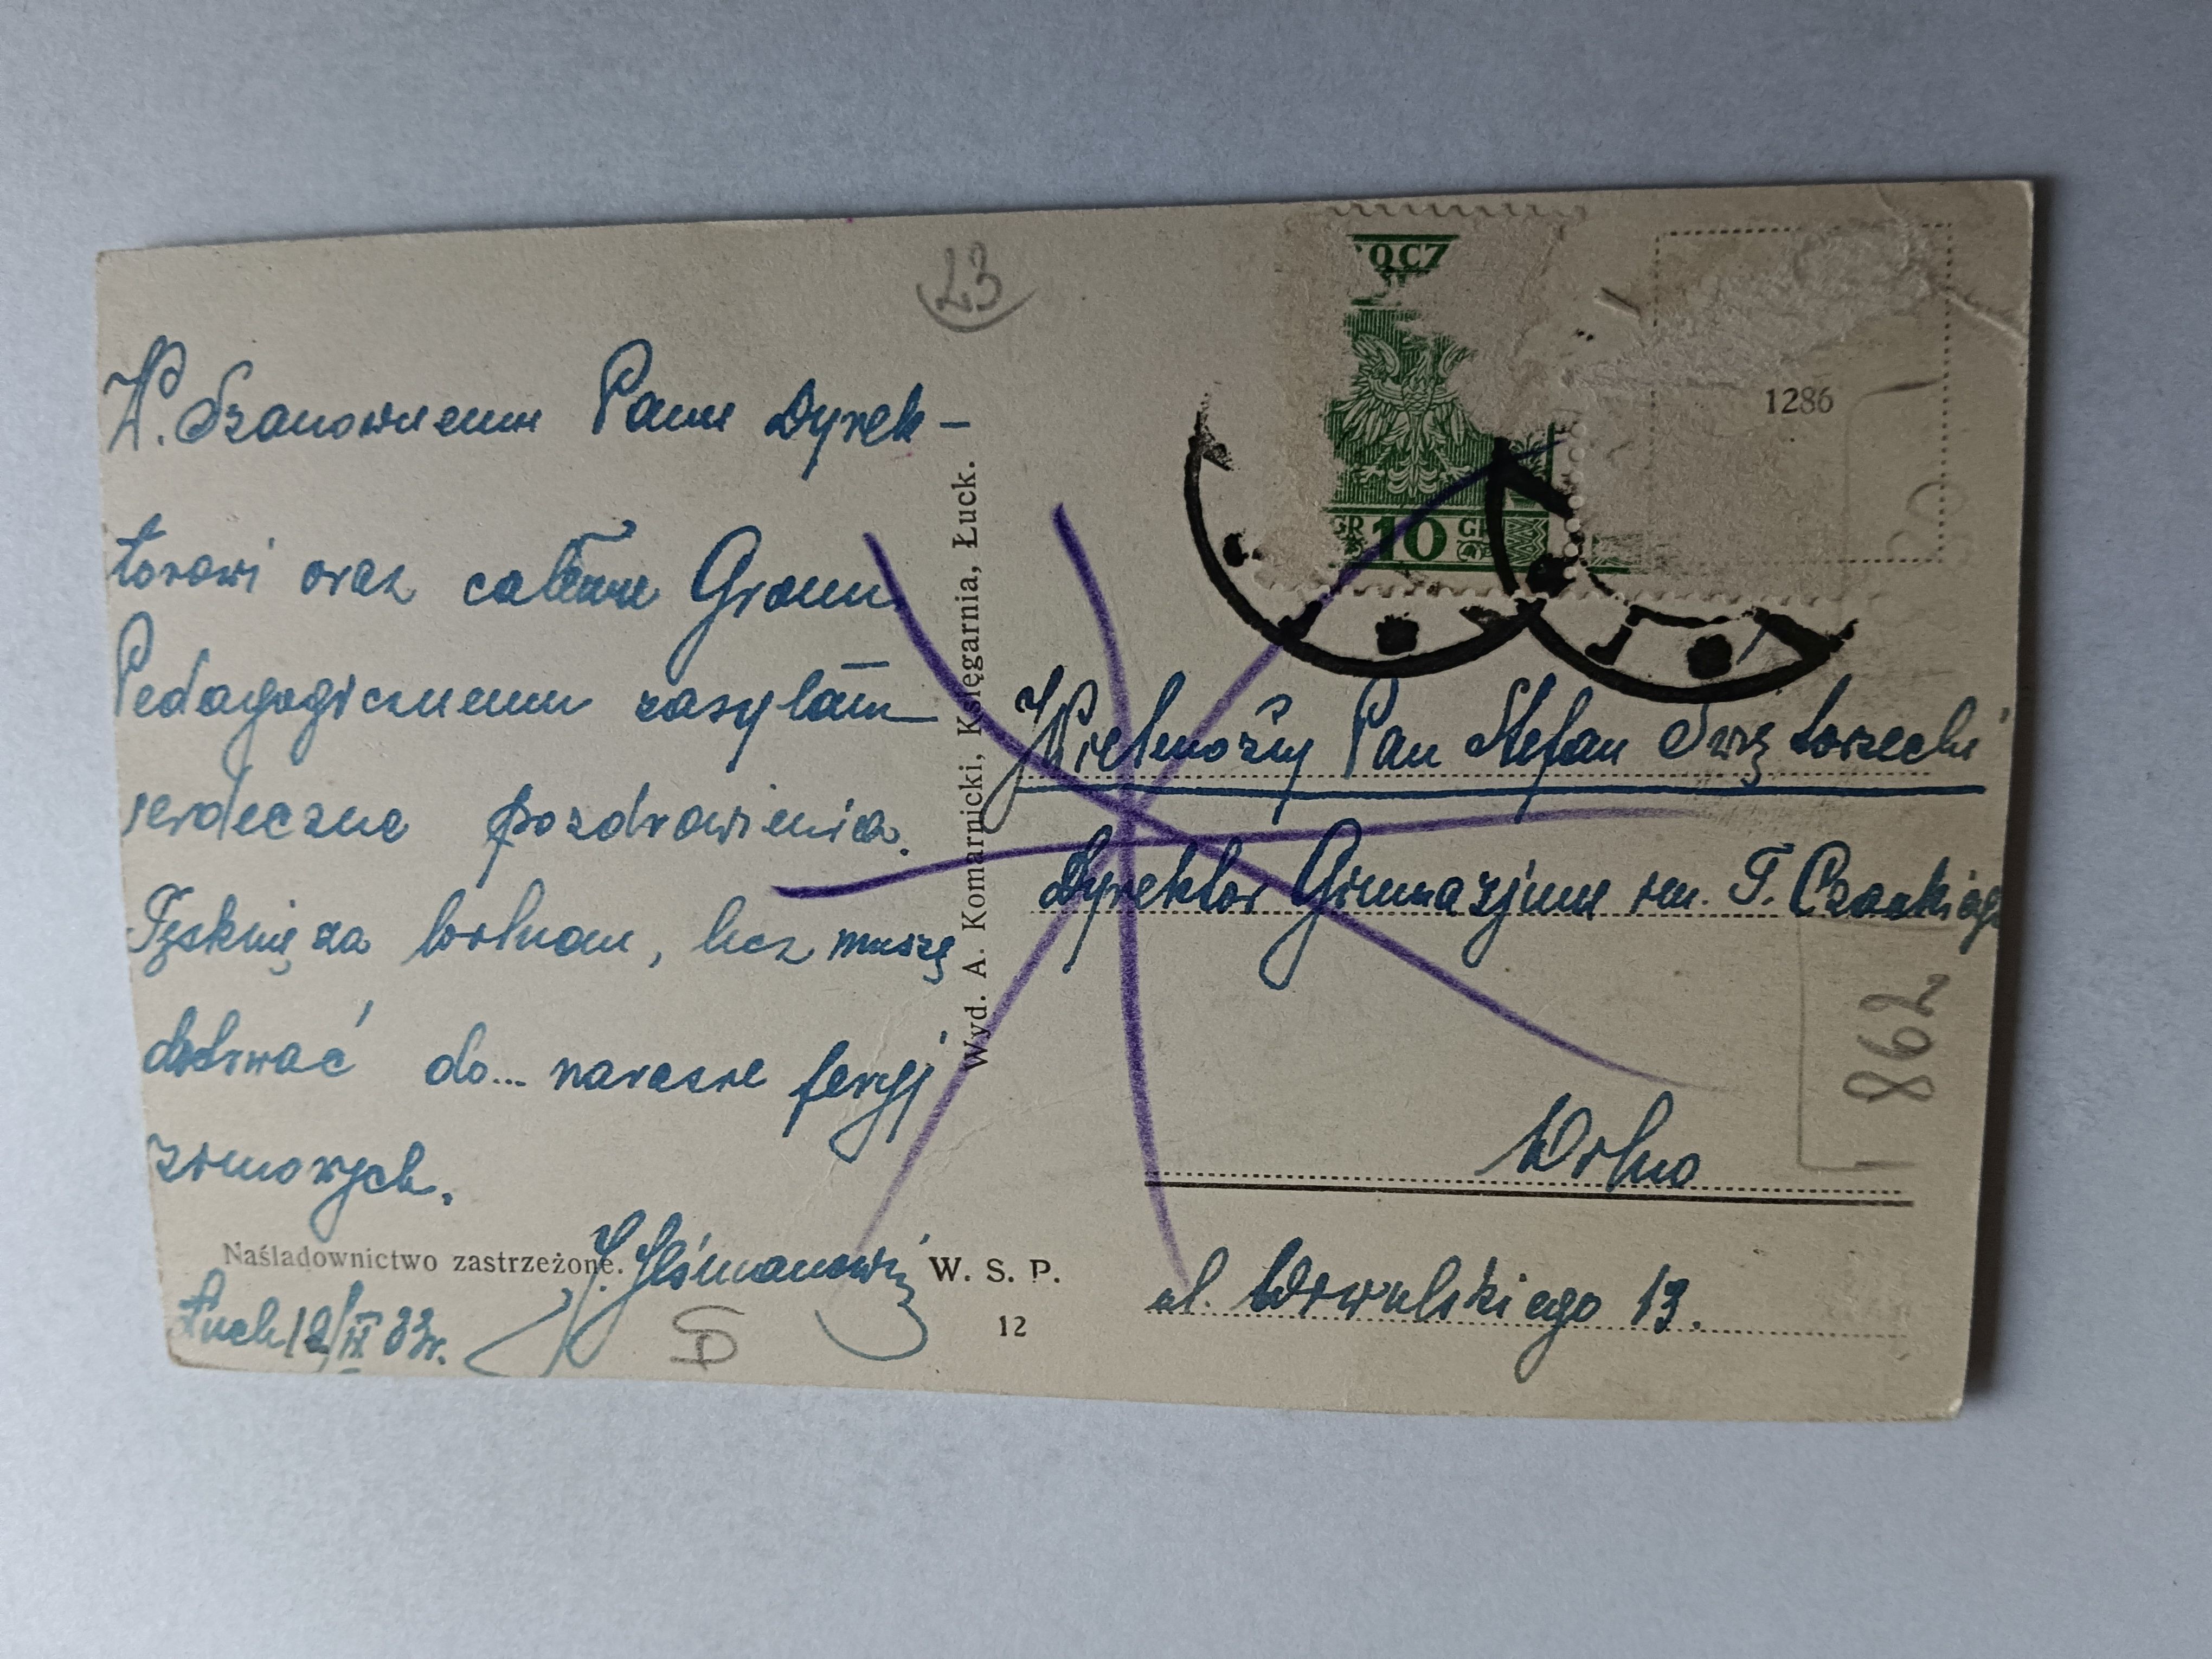 23
W. Szanownemu Panu Dyrek-
torowi oraz całemu Gronu
Pedagogicznemu zasyłam
serdeczne pozdrowienia.
Tęsknię za Wilnem, lecz muszę
dotrwać do... narazie feryj
zimowych.
Naśladownictwo zastrzeżone.
Łuck 12/IX 33r.
W. S. P.
12
Wyd. A. Komarnicki, Księgarnia, Łuck.
OCZ
GR 10 GR
1286
Wielmożny Pan Stefan Świętorzecki
Dyrektor Gimnazjum im. T. Czackiego
Wilno
ul. Wiwulskiego 13.
862